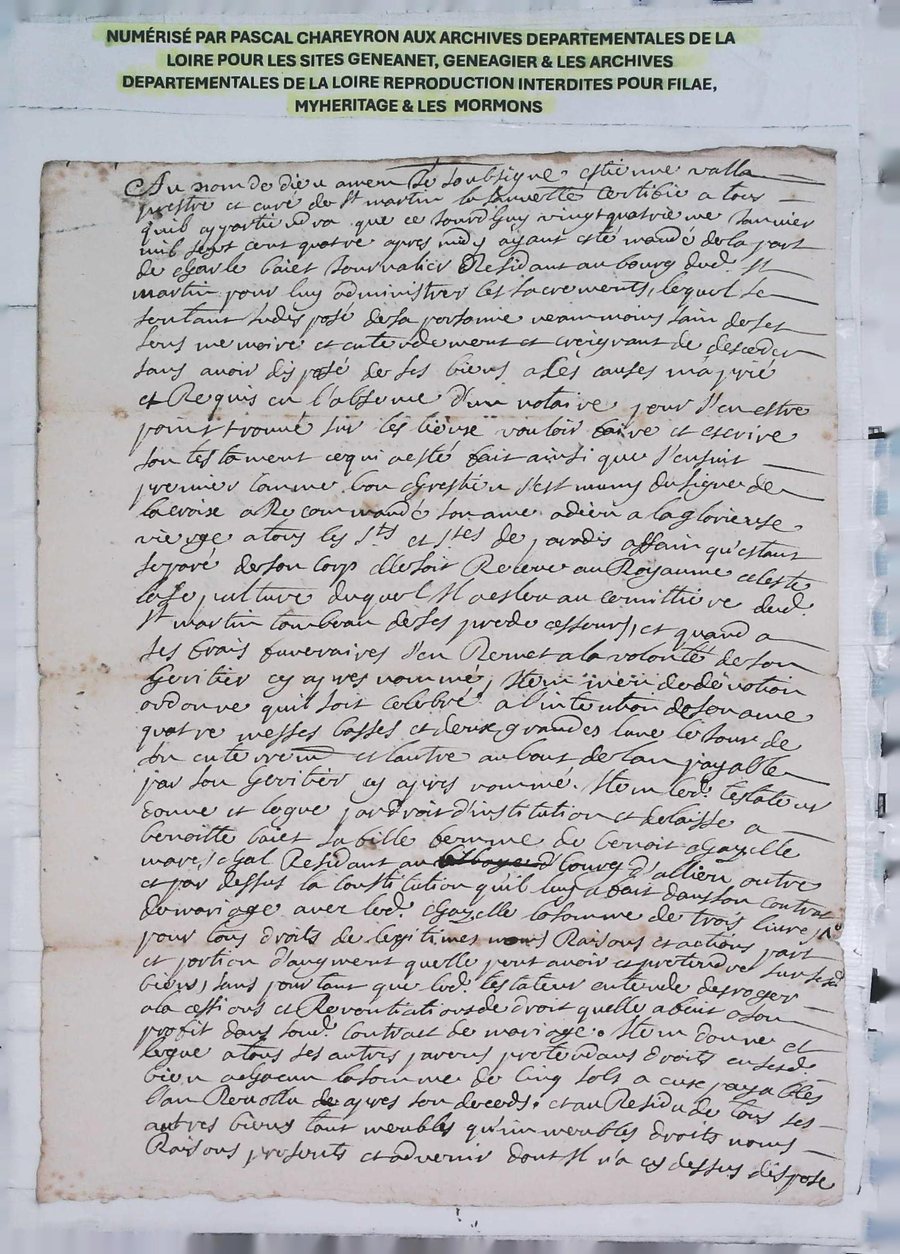 NUMÉRISÉ PAR PASCAL CHAREYRON AUX ARCHIVES DEPARTEMENTALES DE LA
LOIRE POUR LES SITES GENEANET, GENEAGIER & LES ARCHIVES
DEPARTEMENTALES DE LA LOIRE REPRODUCTION INTERDITES POUR FILAE,
MYHERITAGE & LES MORMONS
Au nom de dieu amen Je soubsigné estienne valla
prestre et curé de St martin la sauvette certifie a tous
quil appartiendra que ce jourdhuy vingtquatrieme Janvier
mil sept cent quatre apres midy ayant esté mandé de la part
de charle baiet Journalier Residant au bourg dud. St
martin pour luy administrer les sacrements, lequel se
sentant indisposé de sa personne neammoins sain de ses
sens memoire et entendement et creignant de deceder
sans avoir disposé de ses biens a les causes ma prié
et Requis en l'absence d'un notaire pour s'en estre
point trouvé sur les lieux vouloir faire et escrire
son testament ce qui a esté fait ainsi que s'ensuit
premier comme bon chrestien s'est muny du signe de
la croix a Recommandé son ame a dieu a la glorieuse
vierge a tous les Sts et Stes de paradis affain qu'estant
separé de son corp elle soit Receue au Royaume celeste
la sepulture duquel Il a esleu au cemittiere dud.
St martin tombeau de ses predecesseurs, et quand a
ses frais funeraires s'en Remet a la volonté de son
heritier cy apres nommé, Item meu de devotion
ordonne quil soit celebré a l'intention de son ame
quatre messes basses et deux grandes lune le jour de
son enterremt et lautre au bout de lan payable
par son heritier cy apres nommé. Item led. testateur
donne et legue par droit d'institution et delaisse a
benoitte baiet sa fille femme de benoit chazelle
mareschal Residant au bourg d'allieu outre
et par dessus la constitution qu'il luy a fait dans son contrat
de mariage avec led. chazelle la somme de trois livres,
pour tous droits de legitimes noms Raisons et actions part
et portion d'augment quelle peut avoir et pretendre sur sesd.
biens, sans pourtant que led. testateur entende desroger
a la cessions et Renontiations de droit quelle a fait a son
profit dans sond. contract de mariage. Item donne et
legue a tous ses autres parens pretendans droits en sesd.
bien a chacun la somme de cinq sols a eux payables
l'an Revollu apres son deceds; et au Residu de tous ses
autres biens tant meubles qu'immeubles droits noms
Raisons presents et advenir dont Il n'a cy dessus disposé